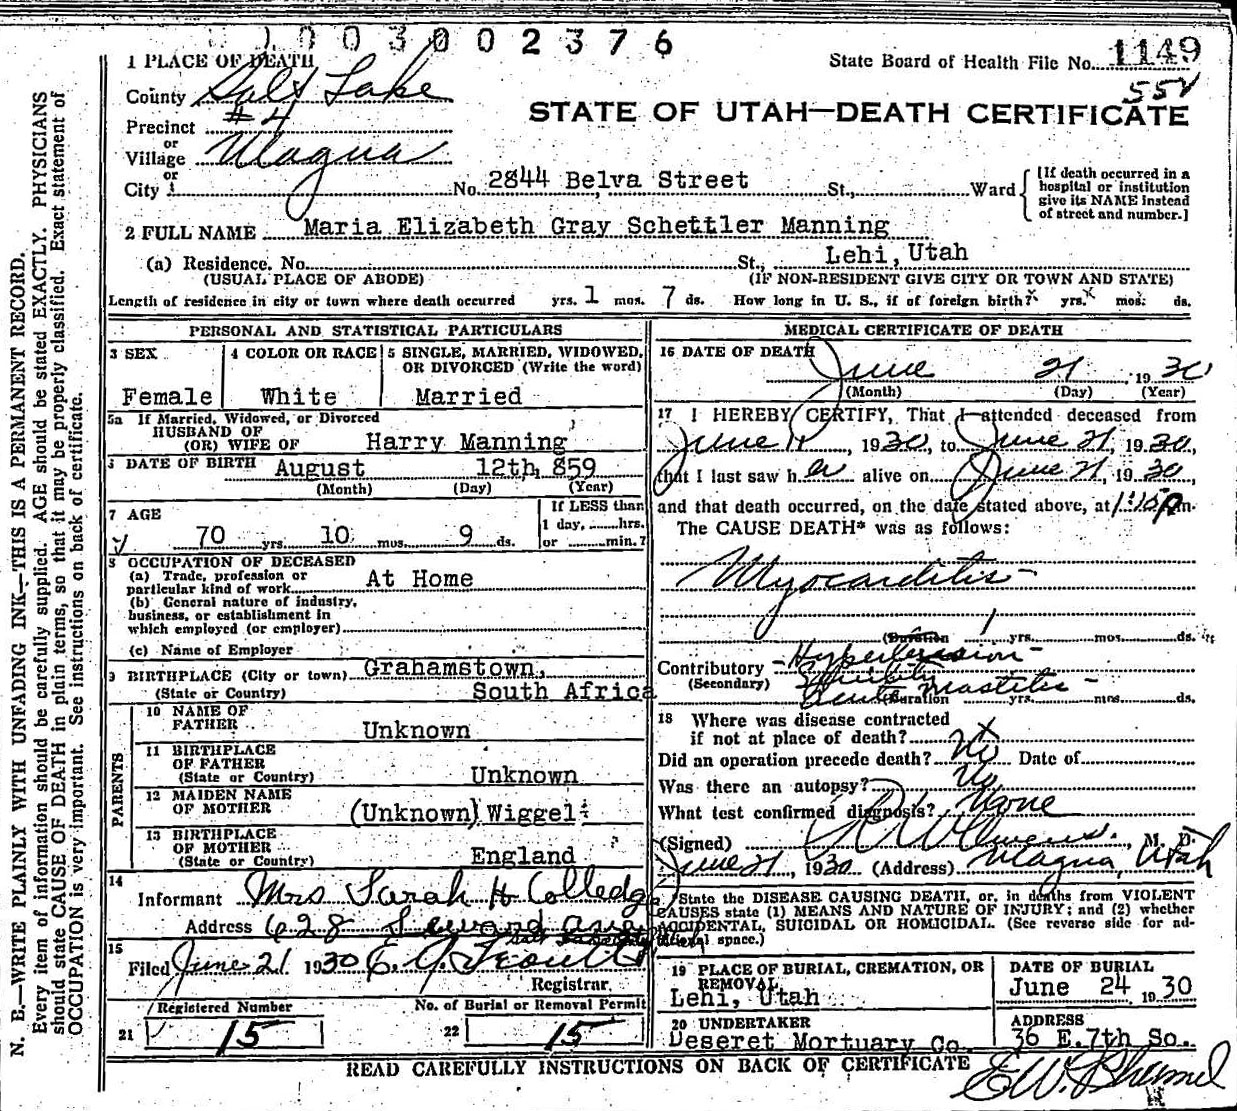 0 0 3 0 0 2 3 7 6
1 PLACE OF DEATH
State Board of Health File No. 1149
County Salt Lake
558
STATE OF UTAH—DEATH CERTIFICATE
Precinct #4
or
Village Magna
or
City No. 2844 Belva Street St., Ward
[If death occurred in a hospital or institution give its NAME instead of street and number.]
2 FULL NAME Maria Elizabeth Gray Schettler Manning
(a) Residence. No. St., Lehi, Utah
(USUAL PLACE OF ABODE) (IF NON-RESIDENT GIVE CITY OR TOWN AND STATE)
Length of residence in city or town where death occurred yrs. 1 mos. 7 ds. How long in U. S., if of foreign birth? yrs. mos. ds.
PERSONAL AND STATISTICAL PARTICULARS
3 SEX
Female
4 COLOR OR RACE
White
5 SINGLE, MARRIED, WIDOWED,
OR DIVORCED (Write the word)
Married
5a If Married, Widowed, or Divorced
HUSBAND OF
(OR) WIFE OF Harry Manning
6 DATE OF BIRTH August 12th, 859
(Month) (Day) (Year)
7 AGE
70 yrs. 10 mos. 9 ds.
If LESS than
1 day, hrs.
or min.?
8 OCCUPATION OF DECEASED
(a) Trade, profession or
particular kind of work At Home
(b) General nature of industry,
business, or establishment in
which employed (or employer)
(c) Name of Employer
9 BIRTHPLACE (City or town) Grahamstown,
(State or Country) South Africa
PARENTS
10 NAME OF
FATHER Unknown
11 BIRTHPLACE
OF FATHER
(State or Country) Unknown
12 MAIDEN NAME
OF MOTHER (Unknown) Wiggel
13 BIRTHPLACE
OF MOTHER
(State or Country) England
14
Informant Mrs Sarah H Colledge
Address 628 Seward ave
15
Filed June 21 1930
Registrar.
Registered Number
21 15
No. of Burial or Removal Permit
22 15
MEDICAL CERTIFICATE OF DEATH
16 DATE OF DEATH
June 21, 1930
(Month) (Day) (Year)
17 I HEREBY CERTIFY, That I attended deceased from
June, 1930, to June 21, 1930,
that I last saw her alive on June 21, 1930,
and that death occurred, on the date stated above, at m.
The CAUSE DEATH* was as follows:
Myocarditis
(Duration 1 yrs. mos. ds.
Contributory Hypertension
(Secondary) Senility
Acute Mastitis
(Duration yrs. mos. ds.
18 Where was disease contracted
if not at place of death? x
Did an operation precede death? No Date of
Was there an autopsy? No
What test confirmed diagnosis? None
(Signed) Owens, M. D.
June 21, 1930 (Address) Magna, Utah
* State the DISEASE CAUSING DEATH, or, in deaths from VIOLENT
CAUSES state (1) MEANS AND NATURE OF INJURY; and (2) whether
ACCIDENTAL, SUICIDAL OR HOMICIDAL. (See reverse side for ad-
ditional space.)
19 PLACE OF BURIAL, CREMATION, OR
REMOVAL
Lehi, Utah
DATE OF BURIAL
June 24 1930
20 UNDERTAKER
Deseret Mortuary Co.
ADDRESS
36 E. 7th So.
READ CAREFULLY INSTRUCTIONS ON BACK OF CERTIFICATE
N. B.—WRITE PLAINLY WITH UNFADING INK—THIS IS A PERMANENT RECORD.
Every item of information should be carefully supplied. AGE should be stated EXACTLY. PHYSICIANS
should state CAUSE OF DEATH in plain terms, so that it may be properly classified. Exact statement of
OCCUPATION is very important. See instructions on back of certificate.